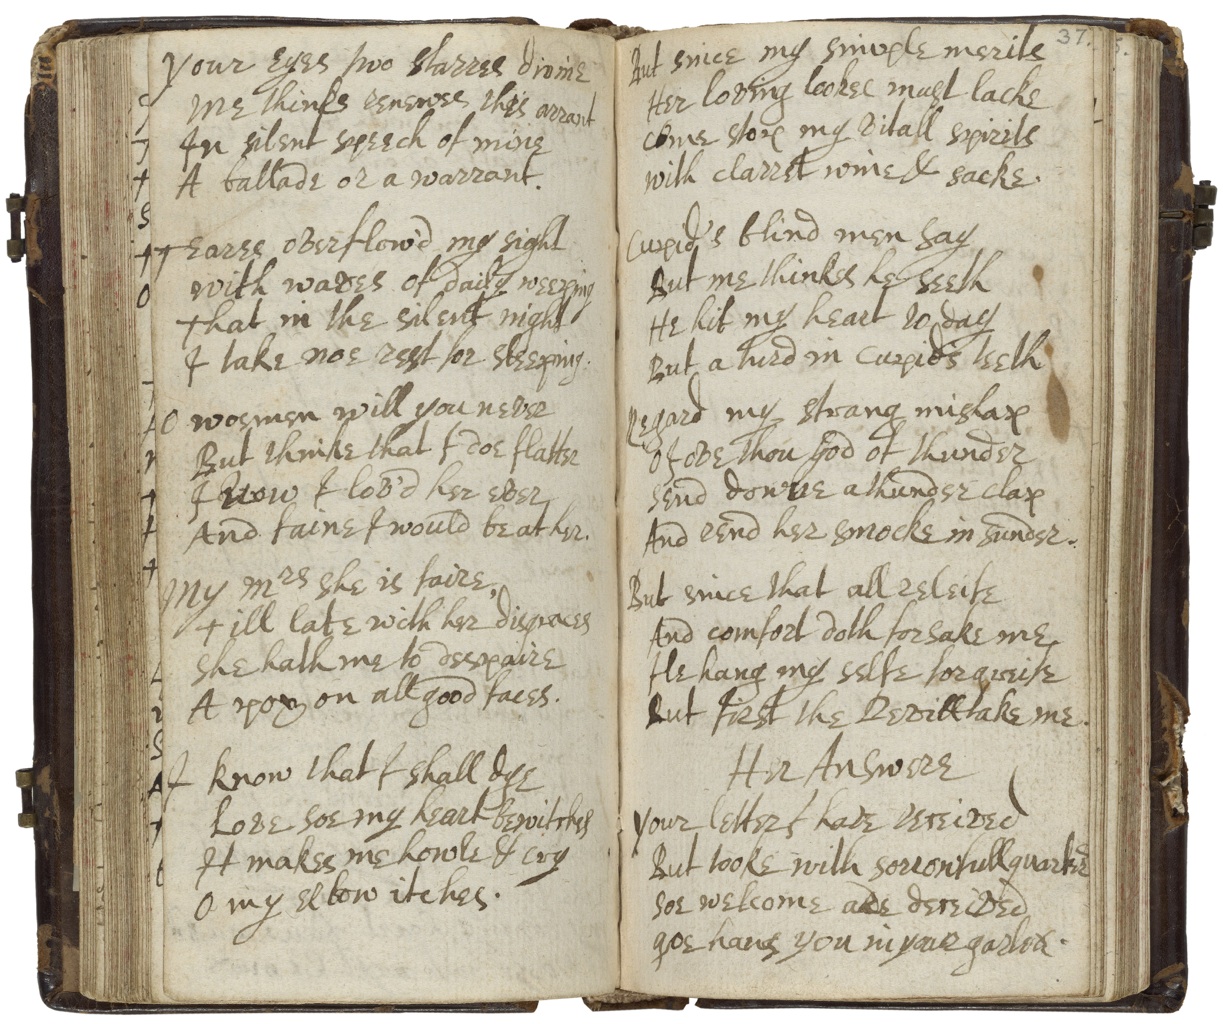 Your Eyes two starres divine
Me thinks renewes this arrant
In silent speech of mine
A ballade or a warrant.
Teares overflow'd my sight
with waves of daily weeping
That in the silent night
I take noe rest for sleeping.
O woemen will you never
But thinke that I doe flatter
I vow I lov'd her ever
And faine I would be at her.
My Mrs she is faire,
Till late with her disgraces
She hath me to despaire
A pox on all good faces.
I know that I shall dye
Love soe my heart bewitches
It makes me howle & cry
O my Elbow itches.
37.
But since my simple merits
Her loving lookes must lacke
Come stop my vitall spirits
with clarret wine & sacke.
Cupid's blind men say
But me thinkes he seeth
He hit my heart to day
But a turd in Cupids teeth
Regard my strang mishap
O Jove thou god of thunder
Send downe a thunder clap
And rend her smocke in sunder.
But since that all releife
And comfort doth forsake me
Ile hang my selfe for greife
But first the Devill take me.
Her Answere
Your letter I have received
But looke with sorrowfull quarter
Soe welcome are deceived
goe hang you in your garter.